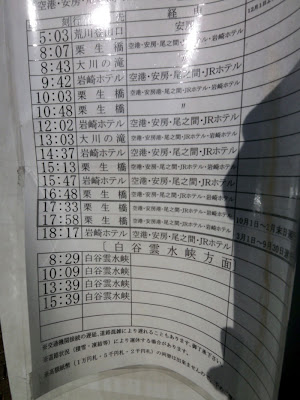 空港・安房・尾之間
経由
5:03 荒川登山口 安房
8:07 栗生橋 空港・安房・尾之間・JRホテル・岩崎ホテル
8:43 大川の滝
9:42 岩崎ホテル 空港・安房・尾之間・JRホテル
10:03 栗生橋 空港・安房・尾之間・JRホテル・岩崎ホテル
10:48 栗生橋 〃
12:02 岩崎ホテル 空港・安房・尾之間・JRホテル
13:03 大川の滝 空港・安房・尾之間・JRホテル・岩崎ホテル
14:37 岩崎ホテル 空港・安房・尾之間・JRホテル
15:13 栗生橋 空港・安房・尾之間・JRホテル・岩崎ホテル
15:47 岩崎ホテル 空港・安房・尾之間・JRホテル
16:48 栗生橋 空港・安房・尾之間・JRホテル・岩崎ホテル
17:28 栗生橋 空港・安房・尾之間・JRホテル・岩崎ホテル
17:58 栗生橋 空港・安房・尾之間・JRホテル・岩崎ホテル
18:17 岩崎ホテル 空港・安房・尾之間・JRホテル
〔白谷雲水峡方面
8:29 白谷雲水峡
10:09 白谷雲水峡
13:39 白谷雲水峡
15:39 白谷雲水峡
※交通機関接続の遅延、道路混雑により遅れることもあります。御了承下さい
※道路状況（積雪・凍結等）により運休する場合があります。
※高額紙幣（1万円札・5千円札・2千円札）の両替は出来ません